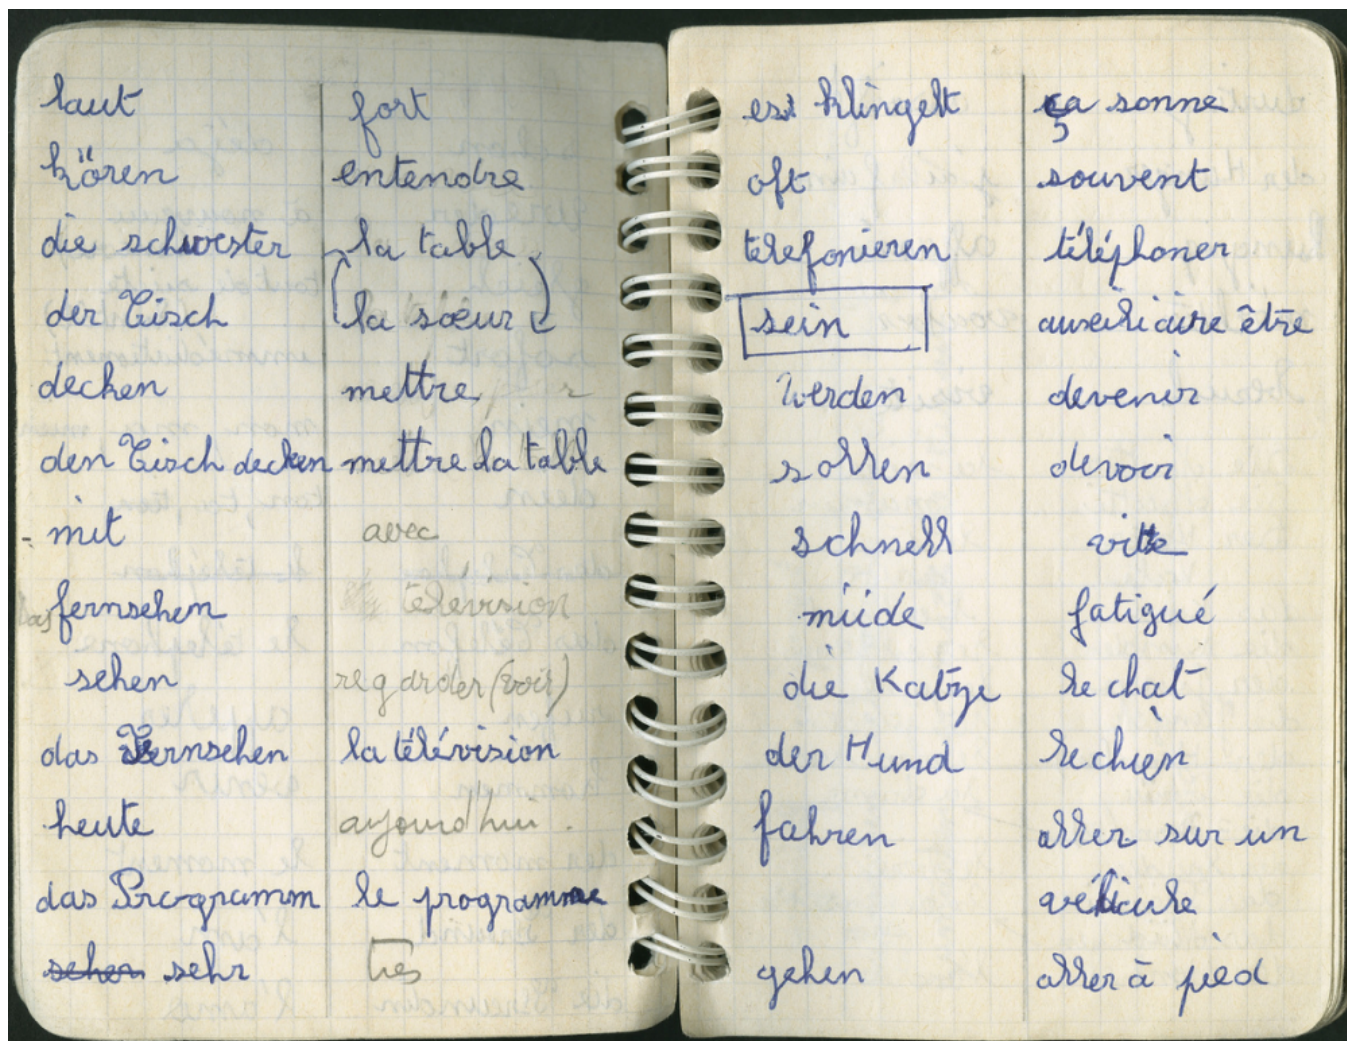 laut fort
hören entendre
die schwester la table
der Tisch la sœur
decken mettre
den Tisch decken mettre la table
- mit avec
das fernsehen télévision
sehen regarder (voir)
das Fernsehen la télévision
heute aujourd'hui.
das Programm le programme
sehen sehr très
est klingelt ça sonne
oft souvent
telefonieren téléphoner
sein auxiliaire être
werden devenir
sollen devoir
schnell vite
müde fatigué
die Katze le chat
der Hund le chien
fahren aller sur un
véhicule
gehen aller à pied